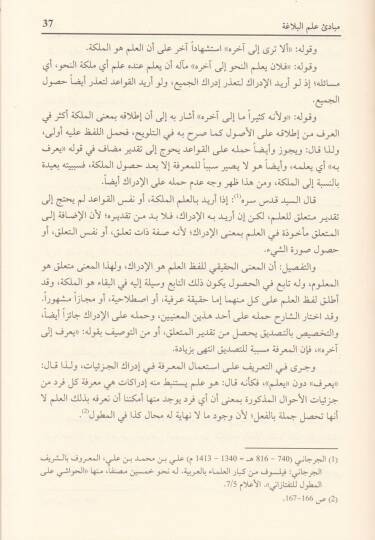 مبادئ علم البلاغة 37
وقوله: «ألا ترى إلى آخره» استشهاداً آخر على أن العلم هو الملكة.
وقوله: «فلان يعلم النحو إلى آخره» مآله أن يعلم عنده علم أي ملكة النحو، أي
مسائله؛ إذ لو أريد الإدراك لتعذر إدراك الجميع، ولو أريد القواعد لتعذر أيضاً حصول
الجميع.
وقوله: «ولأنه كثيراً ما إلى آخره» أشار به إلى أن إطلاقه بمعنى الملكة أكثر في
العرف من إطلاقه على الأصول كما صرح به في التلويح، فحمل اللفظ عليه أولى،
ولذا قال: ويجوز وأيضاً حمله على القواعد يحوج إلى تقدير مضاف في قوله «يعرف
به» أي يعلمه، وأيضاً هو لا يصير سبباً للمعرفة إلا بعد حصول الملكة، فسببيته بعيدة
بالنسبة إلى الملكة، ومن هذا ظهر وجه عدم حمله على الإدراك أيضاً.
قال السيد قدس سره(1): إذا أريد بالعلم الملكة، أو نفس القواعد لم يحتج إلى
تقدير متعلق للعلم، لكن إن أريد به الإدراك، فلا بد من تقديره؛ لأن الإضافة إلى
المتعلق مأخوذة في العلم بمعنى الإدراك؛ لأنه صفة ذات تعلق، أو نفس التعلق، أو
حصول صورة الشيء.
والتفصيل: أن المعنى الحقيقي للفظ العلم هو الإدراك، ولهذا المعنى متعلق هو
المعلوم، وله تابع في الحصول يكون ذلك التابع وسيلة إليه في البقاء هو الملكة، وقد
أطلق لفظ العلم على كل منهما إما حقيقة عرفية، أو اصطلاحية، أو مجازاً مشهوراً.
وقد اختار الشارح حمله على أحد هذين المعنيين، وحمله على الإدراك جائزاً أيضاً،
والتخصيص بالتصديق يحصل من تقدير المتعلق، أو من التوصيف بقوله: «يعرف إلى
آخره»، فإن المعرفة مسببة للتصديق انتهى بزيادة.
وجرى في التعريف على استعمال المعرفة في إدراك الجزئيات، ولذا قال:
«يعرف» دون «يعلم»، فكأنه قال: هو علم يستنبط منه إدراكات هي معرفة كل فرد من
جزئيات الأحوال المذكورة بمعنى أن أي فرد يوجد منها أمكننا أن نعرفه بذلك العلم لا
أنها تحصل جملة بالفعل؛ لأن وجود ما لا نهاية له محال كذا في المطول(2).
(1) الجرجاني (740 - 816 هـ = 1340 - 1413 م) علي بن محمد بن علي، المعروف بالشريف
الجرجاني: فيلسوف من كبار العلماء بالعربية، له نحو خمسين مصنفاً، منها «الحواشي على
المطول للتفتازاني». الأعلام 7/5.
(2) ص 166-167.